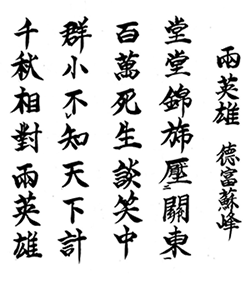 兩英雄 德富蘇峰
堂堂錦旆壓關東
百萬死生談笑中
群小不知天下計
千秋相對兩英雄